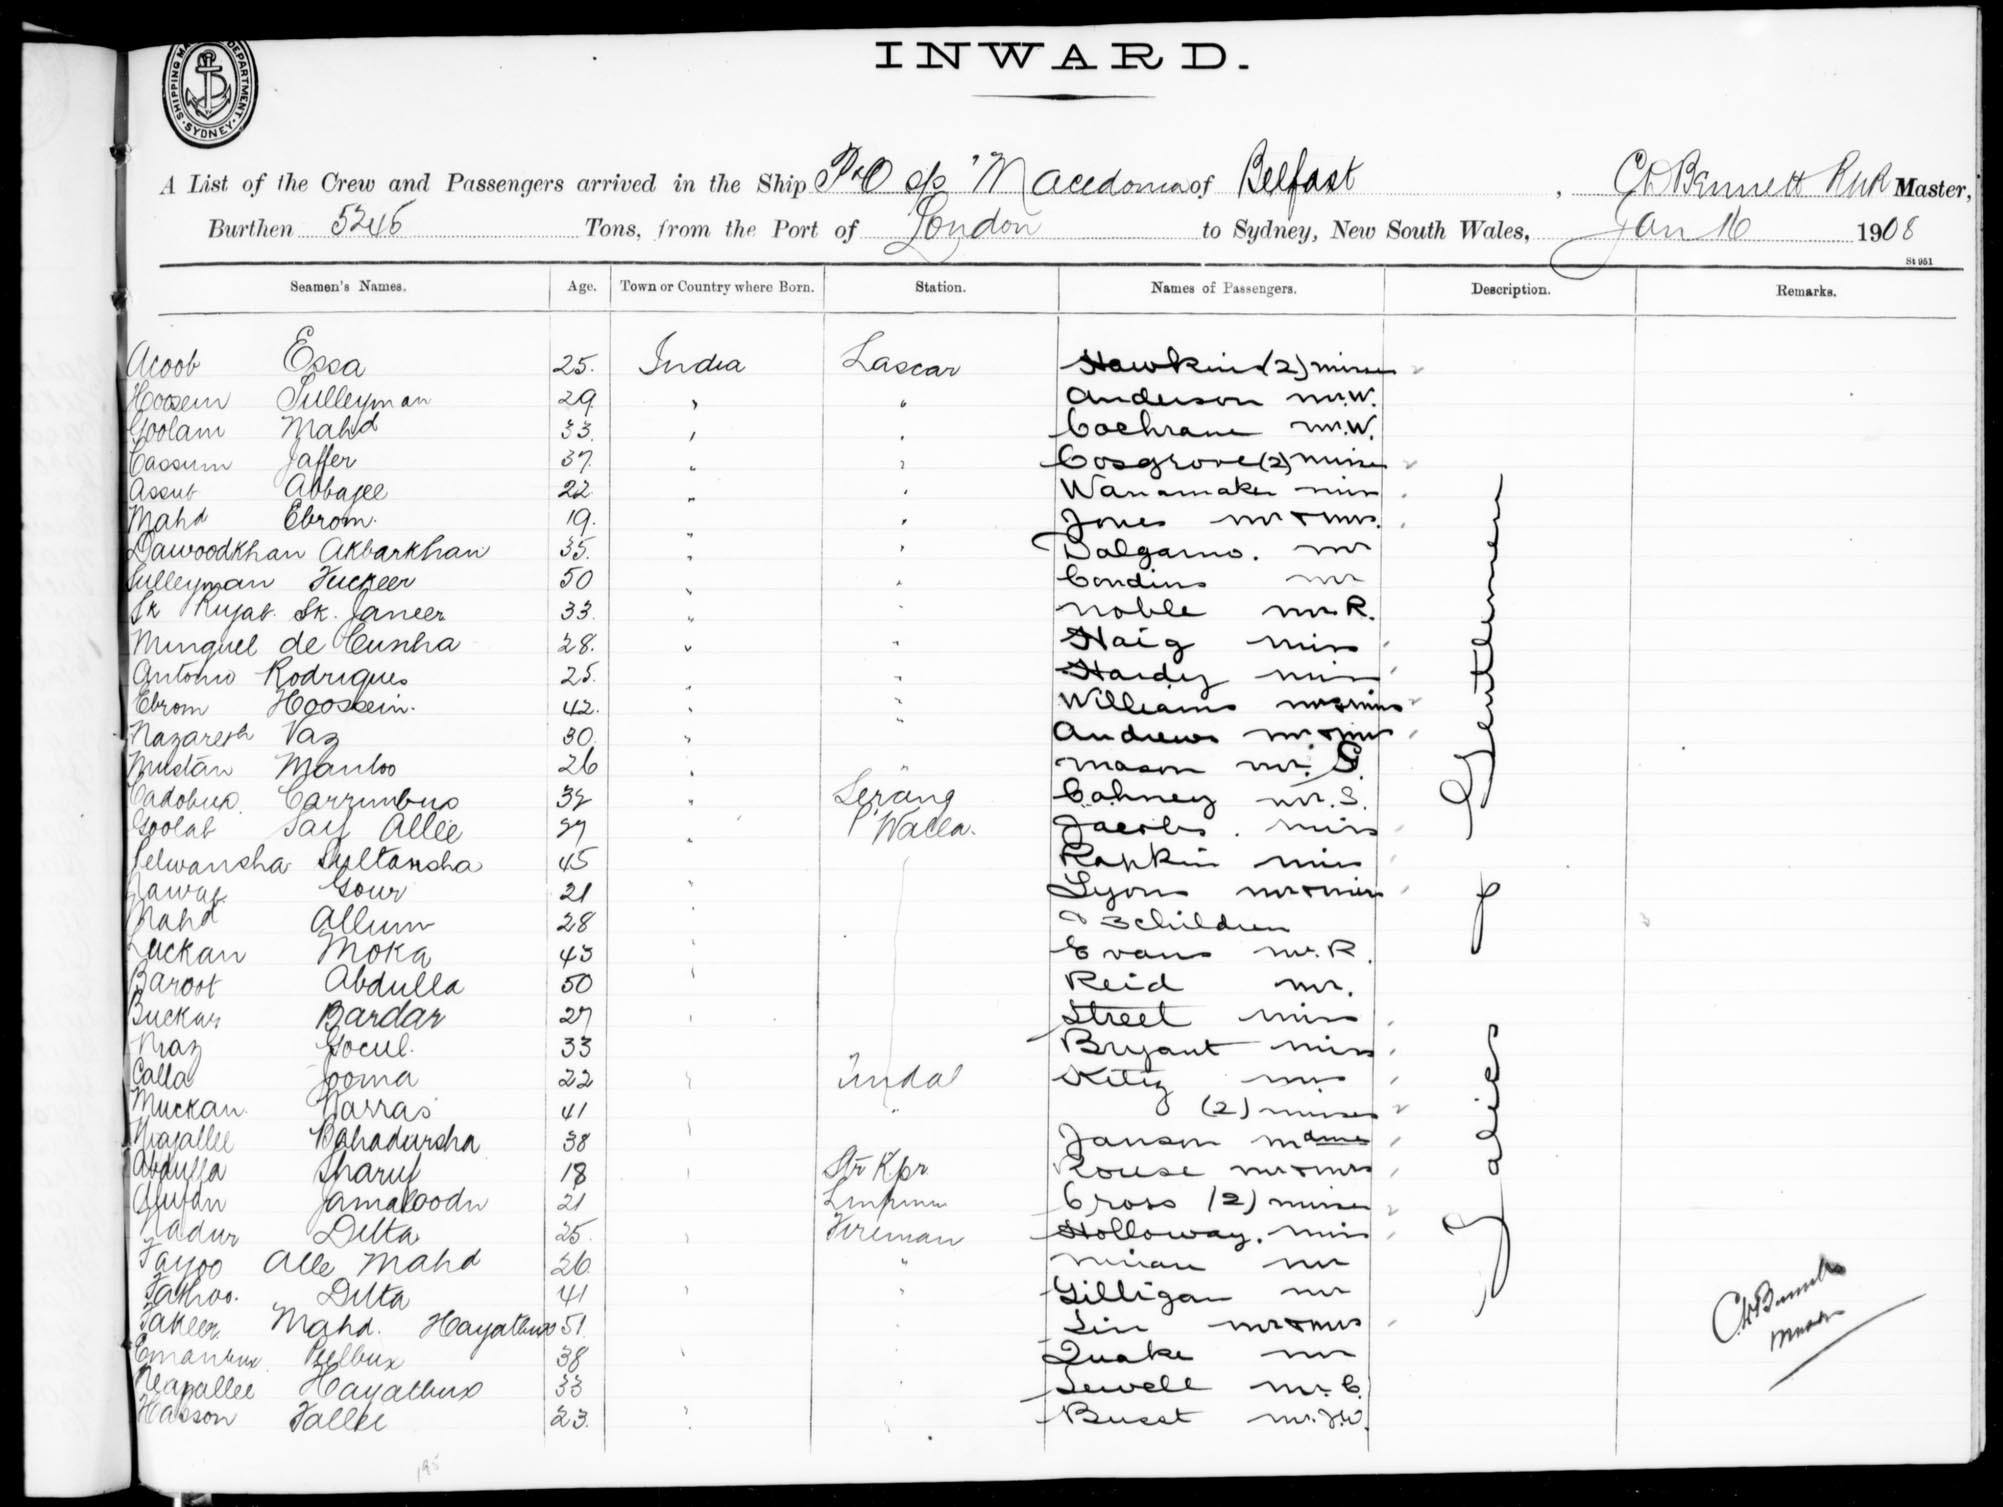 INWARD.
SHIPPING MASTER'S DEPARTMENT. SYDNEY.
A List of the Crew and Passengers arrived in the Ship P&O s/s "Macedonia of Belfast, C D Bennett RNR Master,
Burthen 5246 Tons, from the Port of London to Sydney, New South Wales, Jan 16 1908
St 951
Seamen's Names. Age. Town or Country where Born. Station. Names of Passengers. Description. Remarks.
Acoob Essa 25. India Lascar Hawkins (2) misses
Hoosein Sulleyman 29. " " Anderson mr. W.
Goolam Mahd 33. " " Cochrane mr. W.
Cassum Jaffer 37. " " Cosgrove (2) misses
Assub Abbajee 22. " " Wanamaker miss
Mahd Ebrom. 19. " " Jones mr & mrs.
Dawoodkhan Akbarkhan 35. " " Dalgarno. mr
Sulleyman Fuckeer 50 " " Condins mr
Sk Rujab. Sk. Janeer 33. " " Noble mr R.
Minguel de Cunha 28. " " Haig miss
Antonio Rodrigues 25. " " Hardy miss
Ebrom Hoossein. 42. " " Williams mr & miss
Nazareth Vaz 30. " " Andrews mr & mrs
Mustan Manloo 26 " " Mason mr. G.
Cadobux Carrimbux 32 " Serang Cohney mr. S.
Goolab Say Allee 27 " P Walla. Jacobs. miss
Selwansha Sultansha 45 " Rankin miss
Nawab. Gour 21 " Lyons mr & mrs
Mahd Allum 28 " & 3 children
Luckan Moka 43 " Evans mr. R.
Baroot Abdulla 50 " Reid mr.
Buckar Bardar 27 " Street miss
Niaz Gocul. 33 Bryant miss
Calla Jooma 22 " Tindal Kitz mrs
Muckan. Narras 41 " " (2) misses
Niajallee Bahadursha 38 " Janson mdme
Abdulla Sharif 18 " Str Kpr Rouse mr & mrs
Jamaloodn 21 Lmpmn Cross (2) misses
Nadur Ditta 25. " Fireman Holloway. miss
Tayoo Alle Mahd 26. " " mr
Fathoo. Ditta 41 " " Gilligan mr
Fakeer Mahd. Hayatbux 51. " " Lin mr & mrs
Emambux Peelbux 38 " " Quake mr
Neapallee Hayatbux 33 " " Sewell mr. C.
Hasson Fallee 23. " " Busst mr. J.W.
Gentlemen
&
Ladies
C D Bennett
Master
195